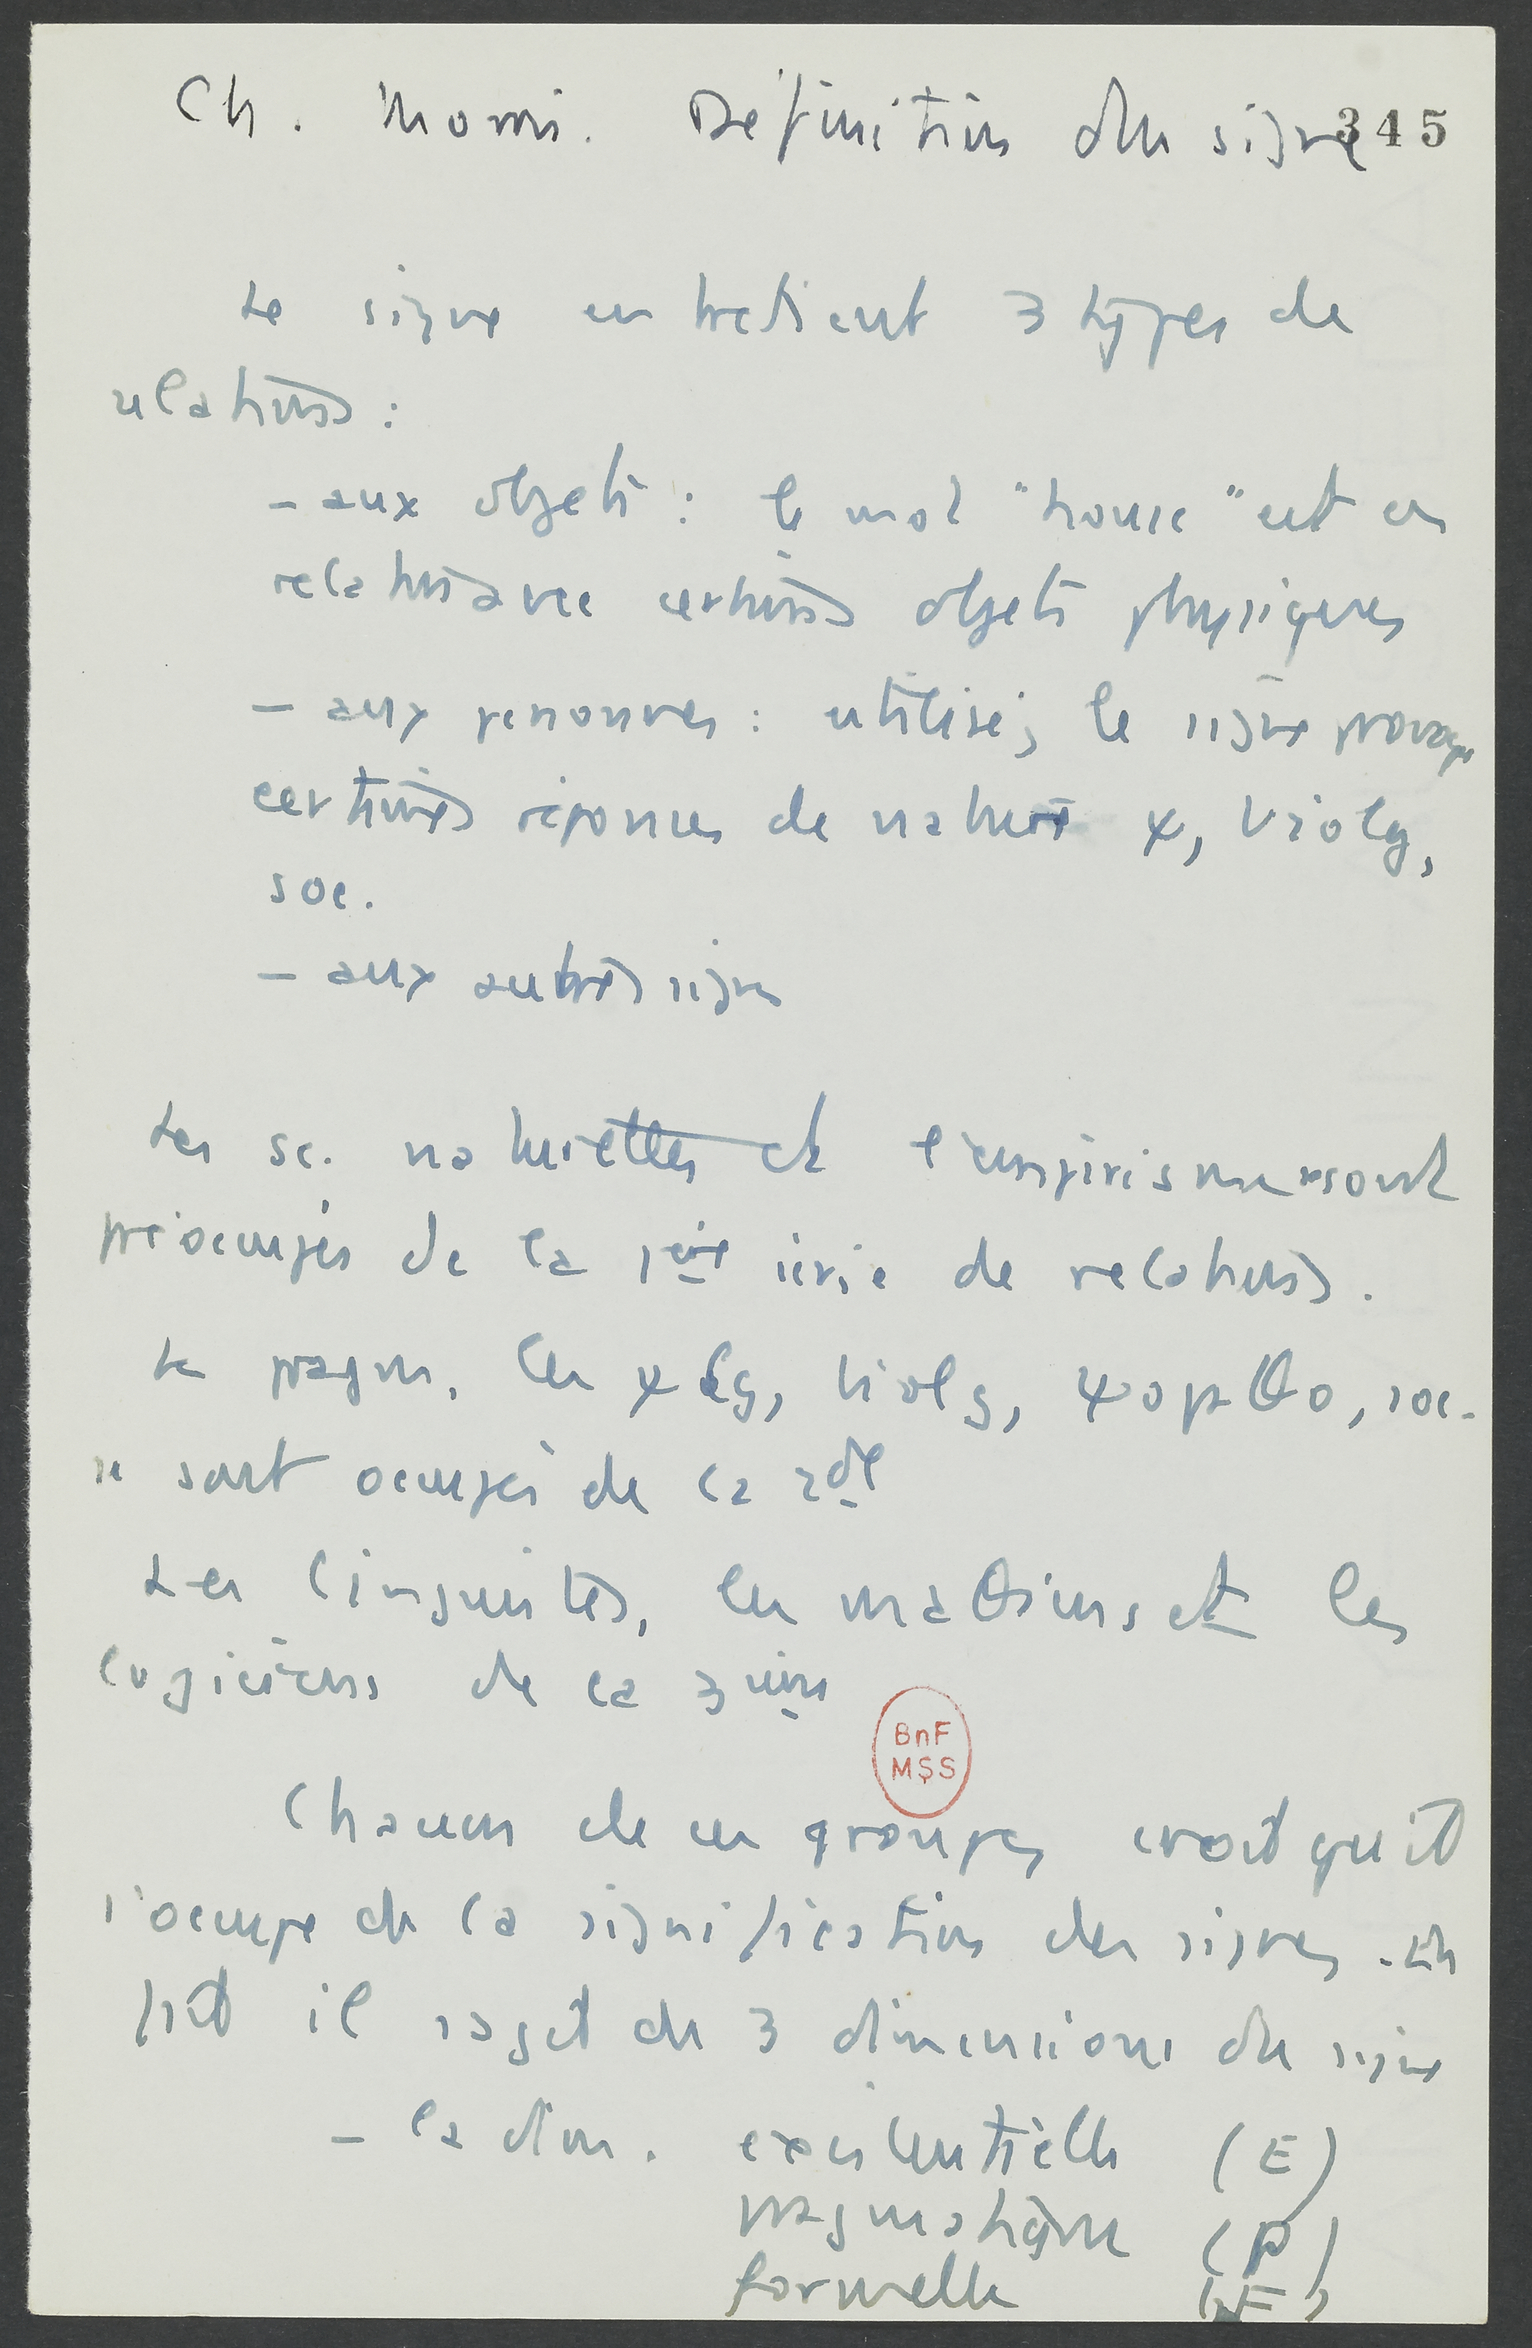 Ch. Morris. Définition du signe
345
Le signe entretient 3 types de
relations :
- aux objets : le mot "house" est en
relations avec certains objets physiques
- aux personnes : utilisé, le signe provoque
certaines réponses de nature ψ, biolg,
soc.
- aux autres signes
Les sc. naturelles et l'empirisme sont
préocupés de la 1ère série de relations.
Le pragm. les ψlg, biolg, ψopaθo, soc.
se sont occupés de la 2de
Les linguistes, les maθiens et les
logiciens de la 3ième
BnF
MSS
Chacun de ces groupes croit qu'il
s'occupe de la signification des signes. En
fait il s'agit de 3 dimensions du signe
- la dim. existentielle (E)
pragmatique (P)
formelle (F)